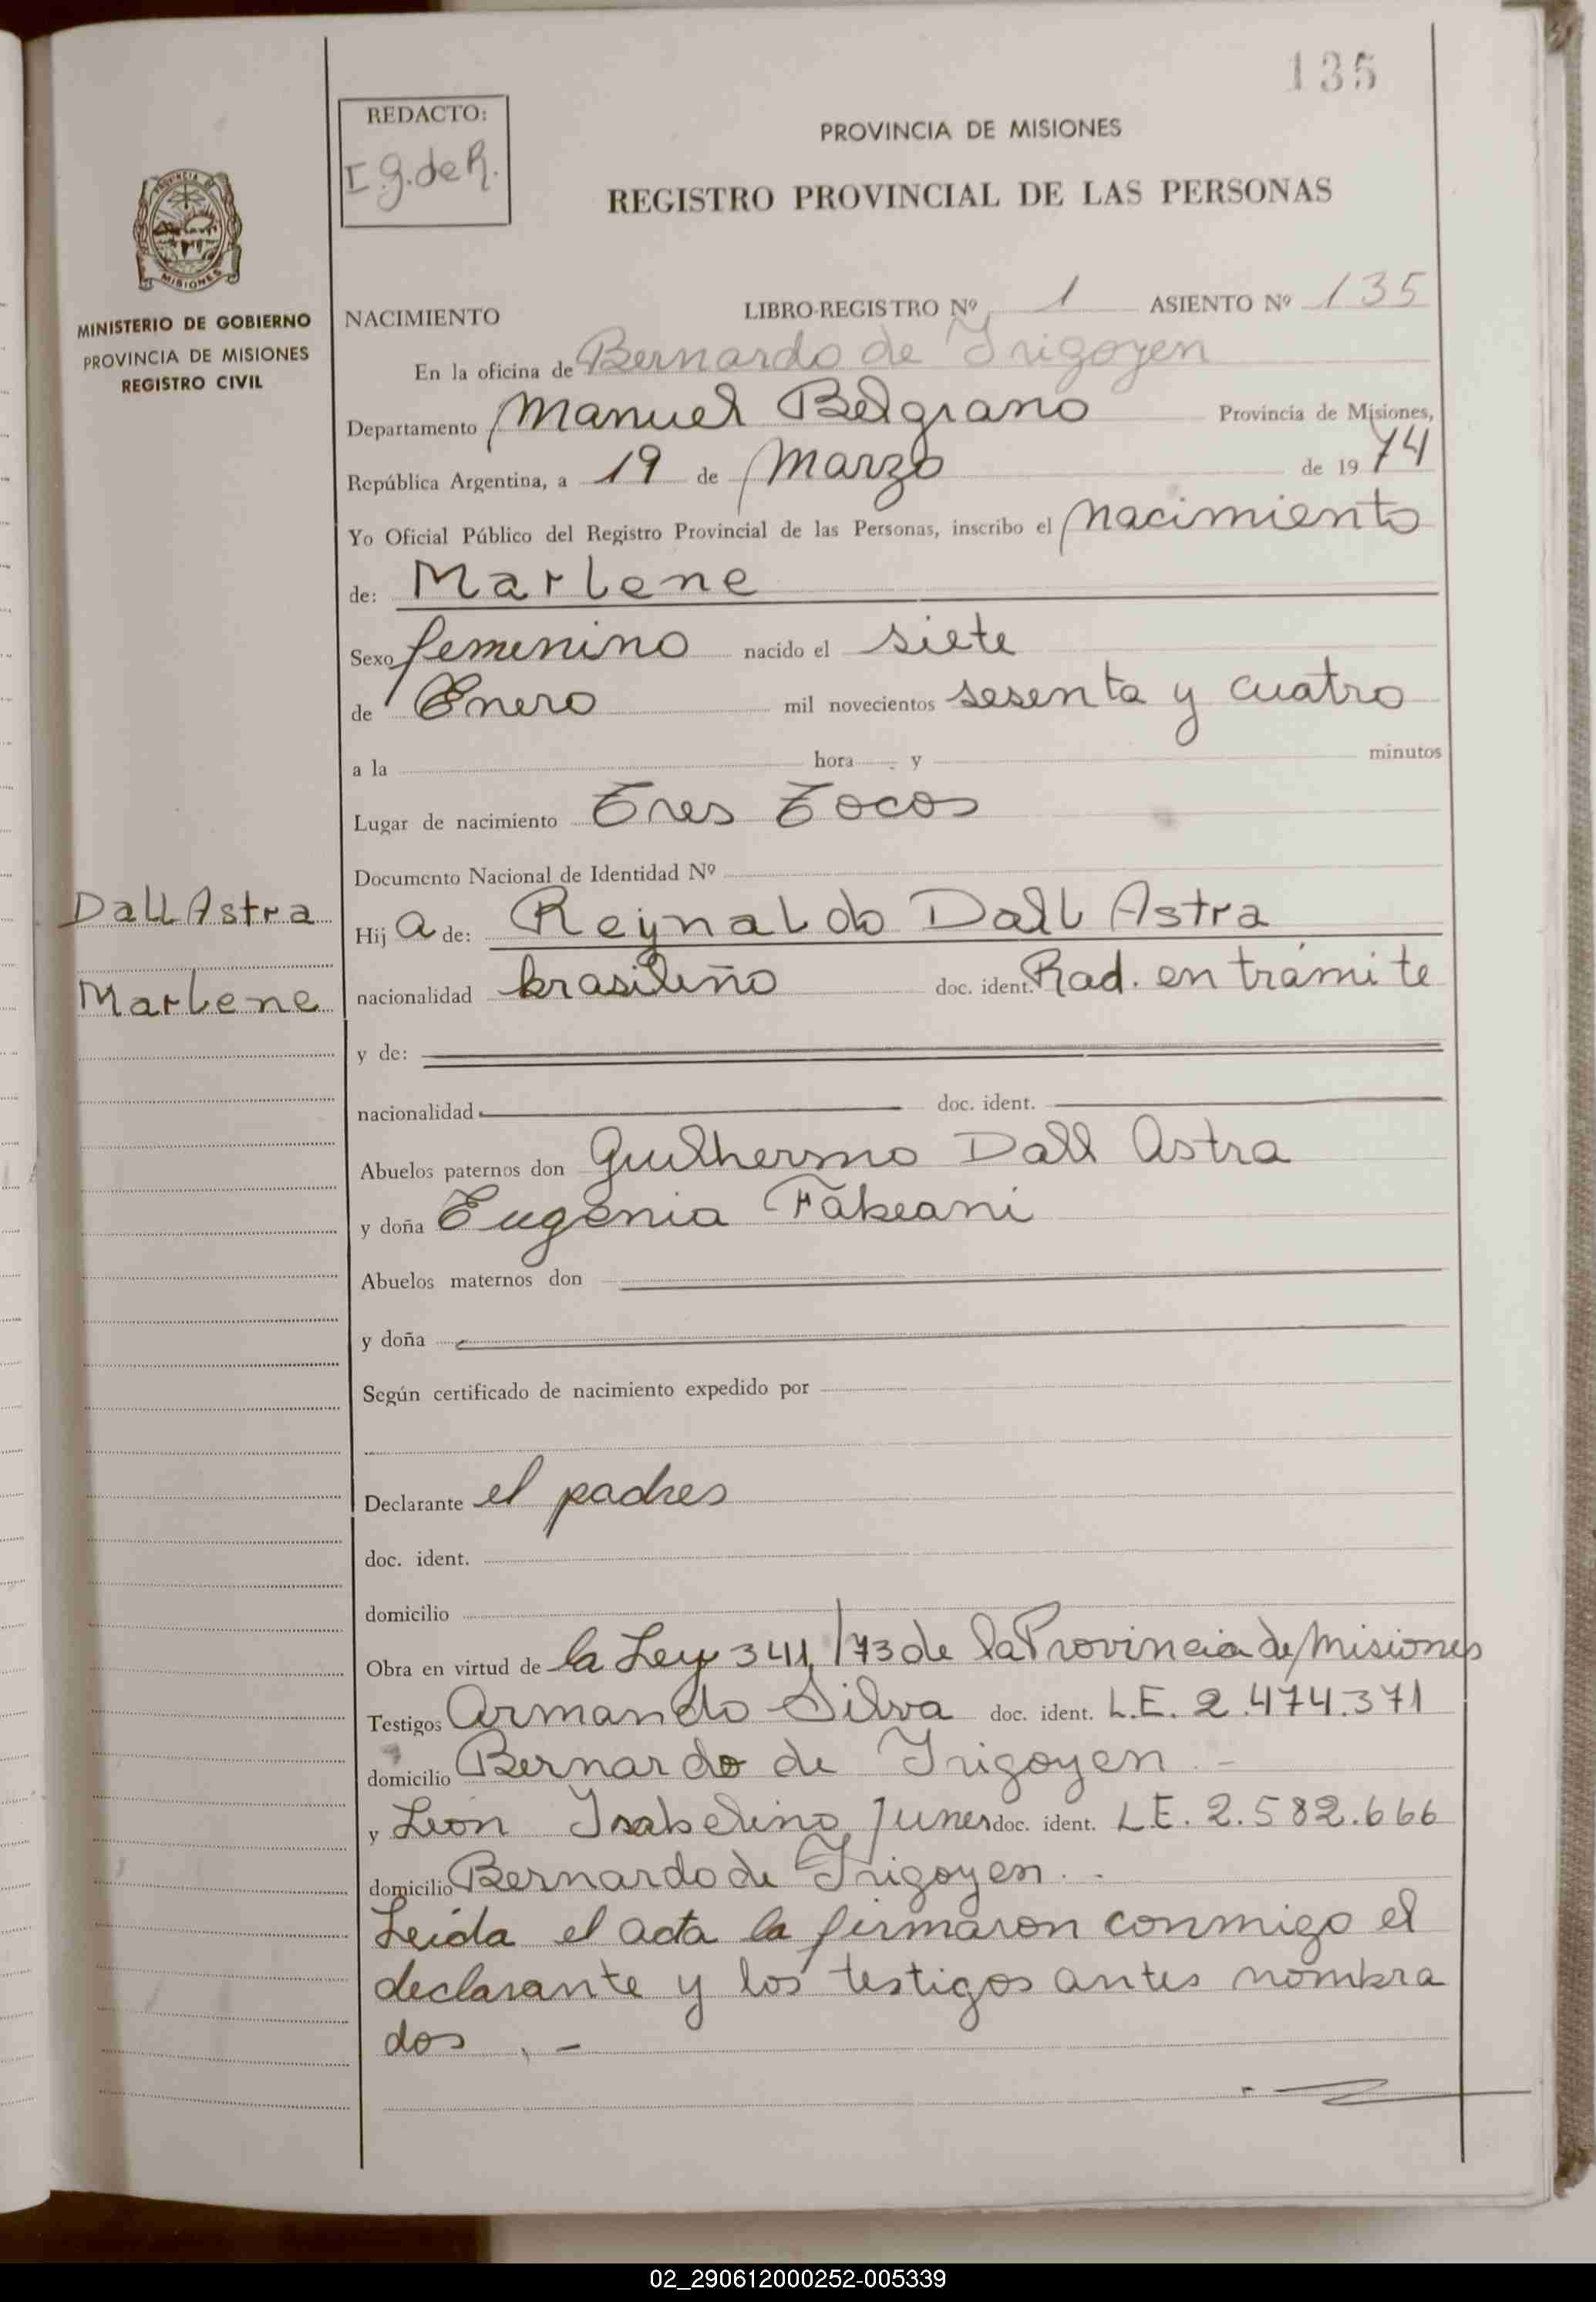 135
REDACTO:
I.g.de R.
PROVINCIA DE MISIONES
REGISTRO PROVINCIAL DE LAS PERSONAS
PROVINCIA DE
MISIONES
MINISTERIO DE GOBIERNO
PROVINCIA DE MISIONES
REGISTRO CIVIL
NACIMIENTO LIBRO-REGISTRO Nº 1 ASIENTO Nº 135
En la oficina de Bernardo de Irigoyen
Departamento Manuel Belgrano Provincia de Misiones,
República Argentina, a 19 de Marzo de 19 74
Yo Oficial Público del Registro Provincial de las Personas, inscribo el Nacimiento
de: Marlene
Sexo femenino nacido el siete
de Enero mil novecientos sesenta y cuatro
a la hora y minutos
Lugar de nacimiento Tres Tocos
Documento Nacional de Identidad Nº
Dall Astra
Hij a de: Reynaldo Dall Astra
Marlene
nacionalidad brasileño doc. ident. Rad. en trámite
y de:
nacionalidad doc. ident.
Abuelos paternos don Guilhermo Dall Astra
y doña Eugenia Fabeani
Abuelos maternos don
y doña
Según certificado de nacimiento expedido por
Declarante el padres
doc. ident.
domicilio
Obra en virtud de la Ley 341/73 de la Provincia de Misiones
Testigos Armando Silva doc. ident. L.E. 2.474.371
domicilio Bernardo de Irigoyen -
y León Isabelino Junes doc. ident. L.E. 2.582.666
domicilio Bernardo de Irigoyen. -
Leída el acta la firmaron conmigo el
declarante y los testigos antes nombra
dos . -
02_290612000252-005339